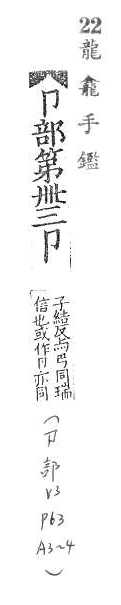 22龍龕手鑑
卪部第卅三卪
子結反卪㔾同瑞
信也或作卩亦同
(卩部
V3
P63
A3~4
)